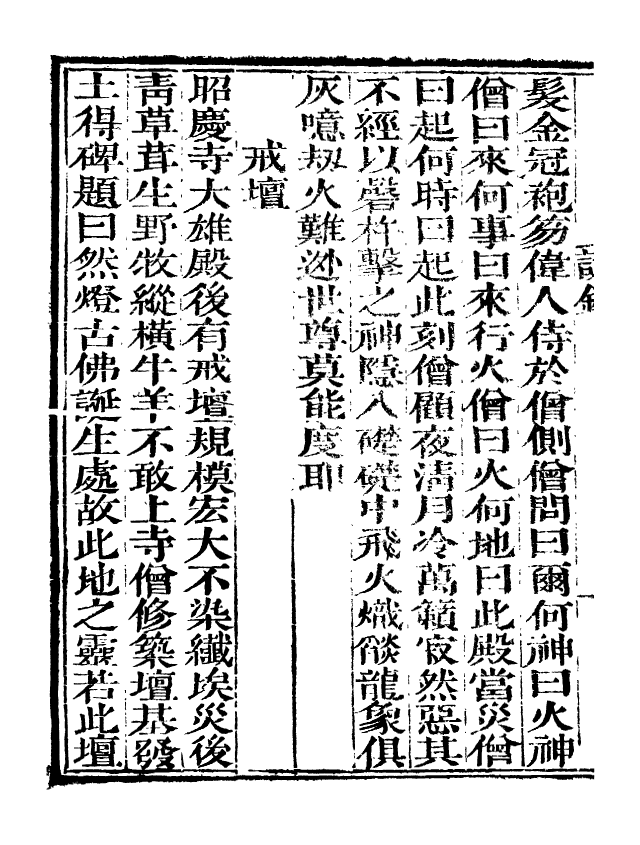 髮金冠袍笏偉人侍於僧側僧問曰爾何神曰火神
僧曰來何事曰來行火僧曰火何地曰此殿當災僧
曰起何時曰起此刻僧顧夜清月冷萬籟寂然惡其
不經以磬杵擊之神隱入礎礎中飛火熾燄龍象俱
灰噫刼火難逃世尊莫能度耶
戒壇
昭慶寺大雄殿後有戒壇規模宏大不染纖埃災後
靑草茸生野牧縱橫牛羊不敢上寺僧修築壇基發
土得碑題曰然燈古佛誕生處故此地之靈若此壇